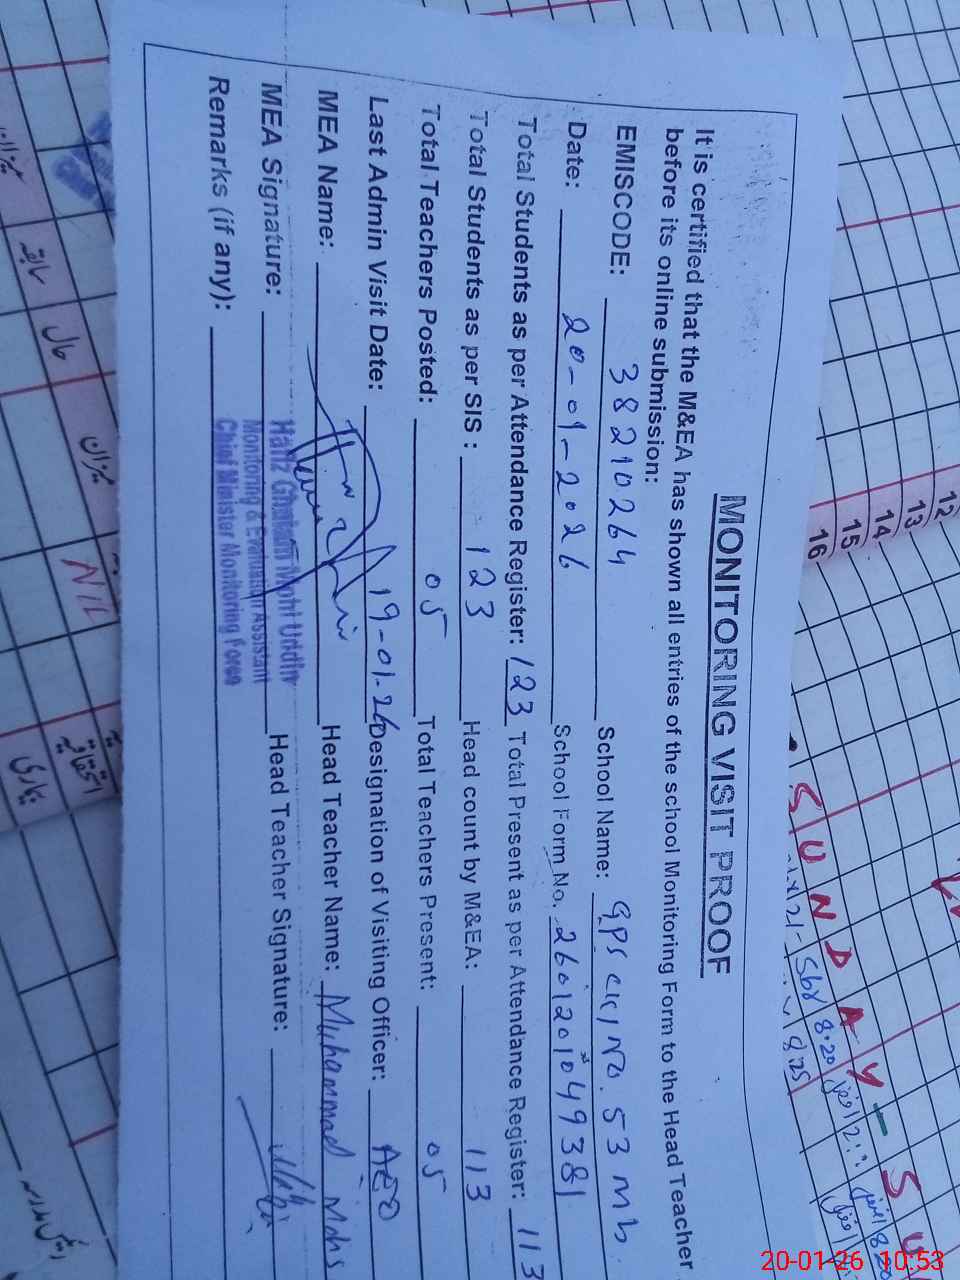 MONITORING VISIT PROOF
It is certified that the M&EA has shown all entries of the school Monitoring Form to the Head Teacher
before its online submission:
EMISCODE: 38210264 School Name: GPS CK NO. 53 mb.
Date: 20-01-2026 School Form No. 2601201049381
Total Students as per Attendance Register: 123 Total Present as per Attendance Register: 113
Total Students as per SIS : 123 Head count by M&EA: 113
Total Teachers Posted: 05 Total Teachers Present: 05
Last Admin Visit Date: 19-01-26 Designation of Visiting Officer: AEO
MEA Name: Head Teacher Name: Muhammad
MEA Signature: Head Teacher Signature:
Remarks (if any):
Hafiz Ghulam Mohi Uddin
Monitoring & Evaluation Assistant
Chief Minister Monitoring Force
12
13
14
15
16
SUNDAY - SU
8.20
8.25
NIL
میزان
سابقہ
حال
میزان
اتفاقیہ
بیماری
20-01-26 10:53